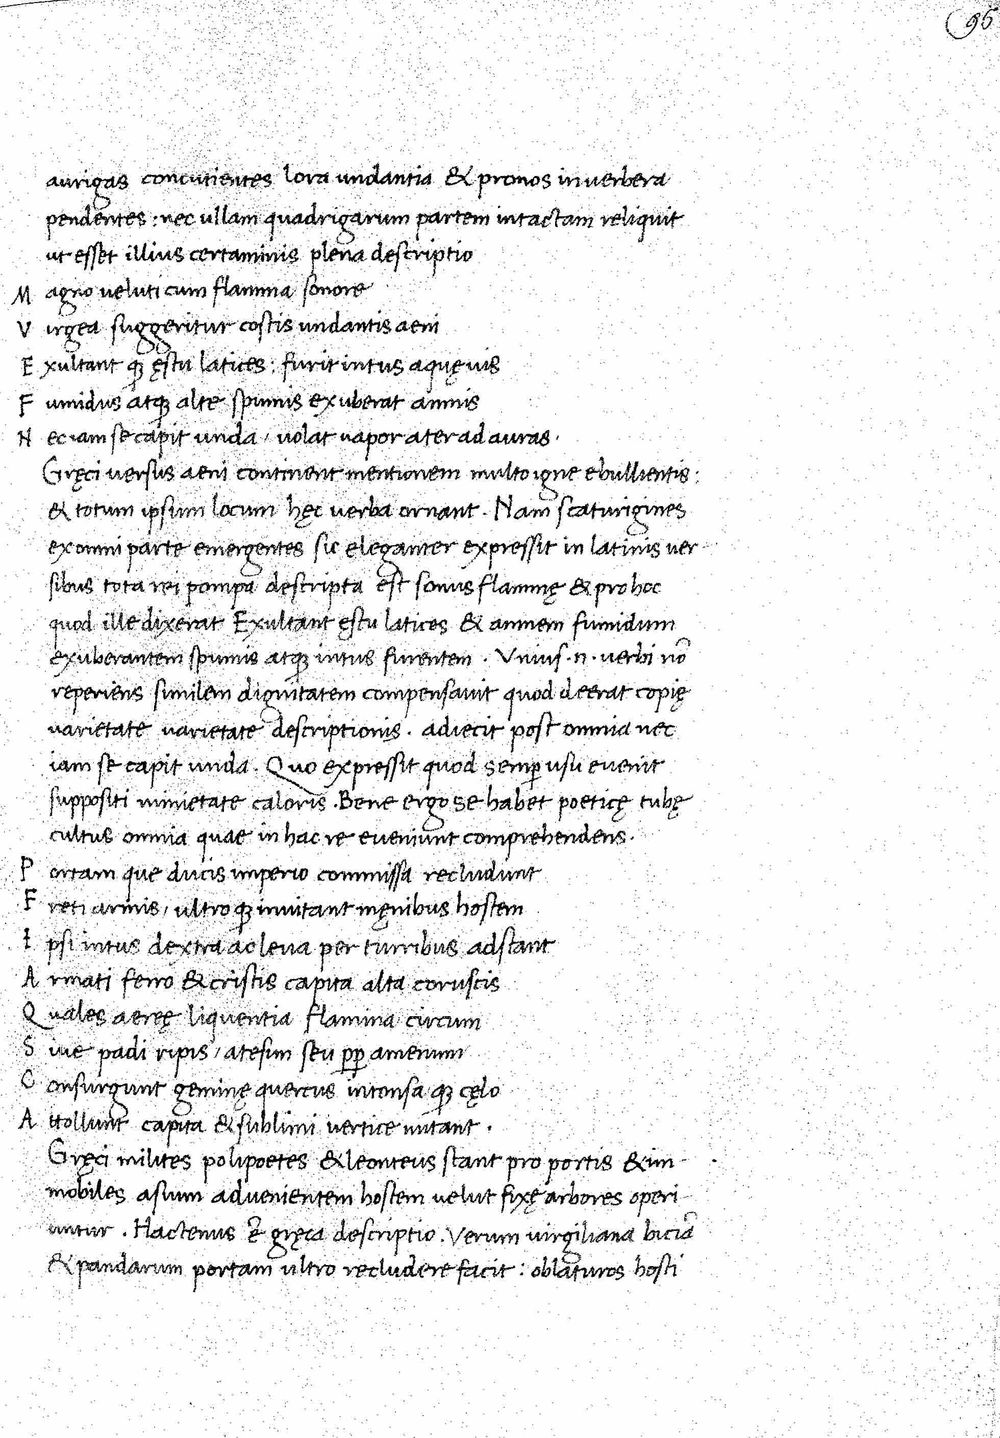 95
aurigas concutientes lora undantia & pronos in verbera
pendentes : nec ullam quadrigarum partem intactam reliquit
ut esset illius certaminis plena descriptio
M agno veluti cum flamma sonore
V irgea suggeritur costis undantis aeni
E xultant qȝ ęstu latices : furit intus aquę vis
F umidus atqȝ alte spumis exuberat amnis
N ec iam se capit unda / volat vapor ater ad auras .
Gręci versus aeni continent mentionem multo igne ebullientis :
& totum ipsum locum hęc verba ornant . Nam scaturigines
ex omni parte emergentes sic eleganter expressit in latinis ver
sibus tota rei pompa descripta est sonus flammę & pro hoc
quod ille dixerat Exultant ęstu latices & amnem fumidum
exuberantem spumis atqȝ intus furentem . Unius . n . verbi nō
reperiens similem dignitatem compensavit quod deerat copię
varietate varietate descriptionis . adiecit post omnia nec
iam se capit unda . Quo expressit quod semp̱ usu evenit
suppositi nimietate caloris . Bene ergo se habet poeticę tubę
cultus omnia quae in hac re eveniunt comprehendens .
P ortam que ducis imperio commissa recludunt
F reti armis / ultro qȝ invitant męnibus hostem
I psi intus dextra ac leva per turribus adstant
A rmati ferro & cristis capita alta coruscis
Q uales aereę liquentia flamina circum
S ive padi ripis / atesim seu p̱p̱ amenum
C onsurgunt geminę quercus intonsa qȝ cęlo
A ttollunt capita & sublimi vertice nutant .
Gręci milites polipoetes & leonteus stant pro portis & im
mobiles asium advenientem hostem velut fixę arbores operi
untur . Hactenus ē gręca descriptio . Verum virgiliana biciā
& pandarum portam ultro recludere facit : oblaturos hosti